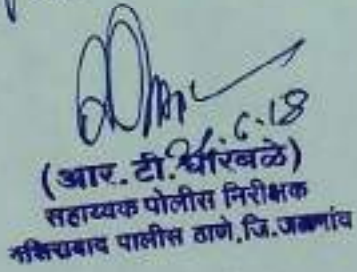 6-18
(आर. टी. धारबळे)
सहाय्यक पोलीस निरीक्षक
नशिराबाद पोलीस ठाणे, जि. जळगांव